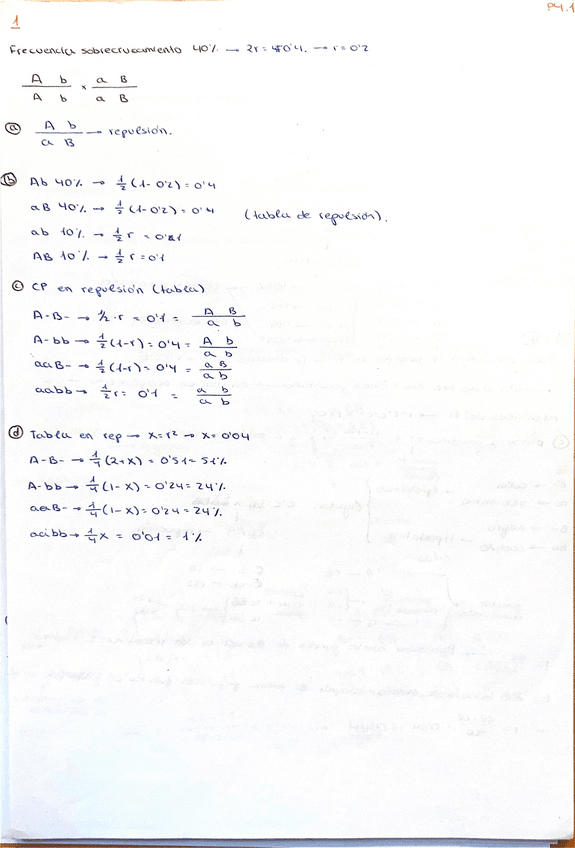 P4.1
1
Frecuencia sobrecruzamiento 40% → 2r = 0'4. → r = 0'2
A b / A b x a B / a B
a) A b / a B → repulsión.
b) Ab 40% → 1/2 (1-0'2) = 0'4
aB 40% → 1/2 (1-0'2) = 0'4 (tabla de repulsión).
ab 10% → 1/2 r = 0'1
AB 10% → 1/2 r = 0'1
c) CP en repulsión (tabla)
A-B- → 1/2 · r = 0'1 = A B / a b
A-bb → 1/2 (1-r) = 0'4 = A b / a b
aaB- → 1/2 (1-r) = 0'4 = a B / a b
aabb → 1/2 r = 0'1 = a b / a b
d) Tabla en rep → x = r² → x = 0'04
A-B- → 1/4 (2+x) = 0'51 = 51%
A-bb → 1/4 (1-x) = 0'24 = 24%.
aaB- → 1/4 (1-x) = 0'24 = 24%.
aabb → 1/4 x = 0'01 = 1%